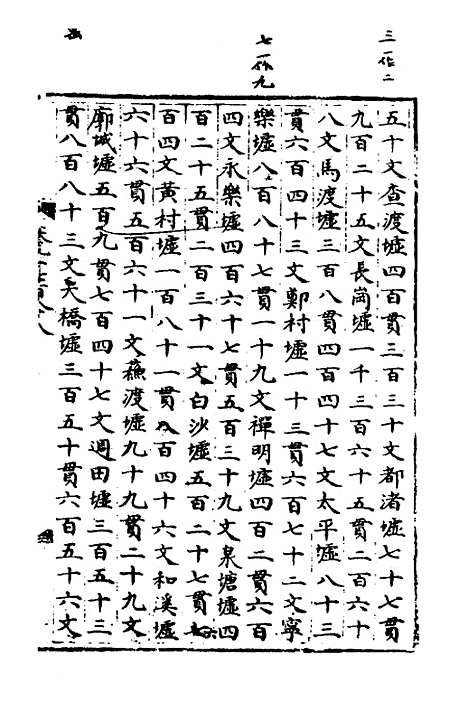 三一作二
七一作九
五十文查渡墟四百貫三百三十文都渚墟七十七貫
九百二十五文長崗墟一千三百六十五貫二百六十
八文馬渡墟三百八貫四百四十七文太平墟八十三
貫六百四十三文鄭村墟一十三貫六百七十二文寧
樂墟八百八十七貫一十九文禪明墟四百二貫六百
四文永樂墟四百六十七貫五百三十九文泉塘墟四
百二十五貫二百三十一文白沙墟五百二十七貫七
百四文黄村墟一百八十一貫八百四十六文和溪墟
六十六貫五百六十一文蘓渡墟九十九貫二十九文
廓城墟五百九貫七百四十七文週田墟三百五十三
貫八百八十三文天橋墟三百五十貫六百五十六文